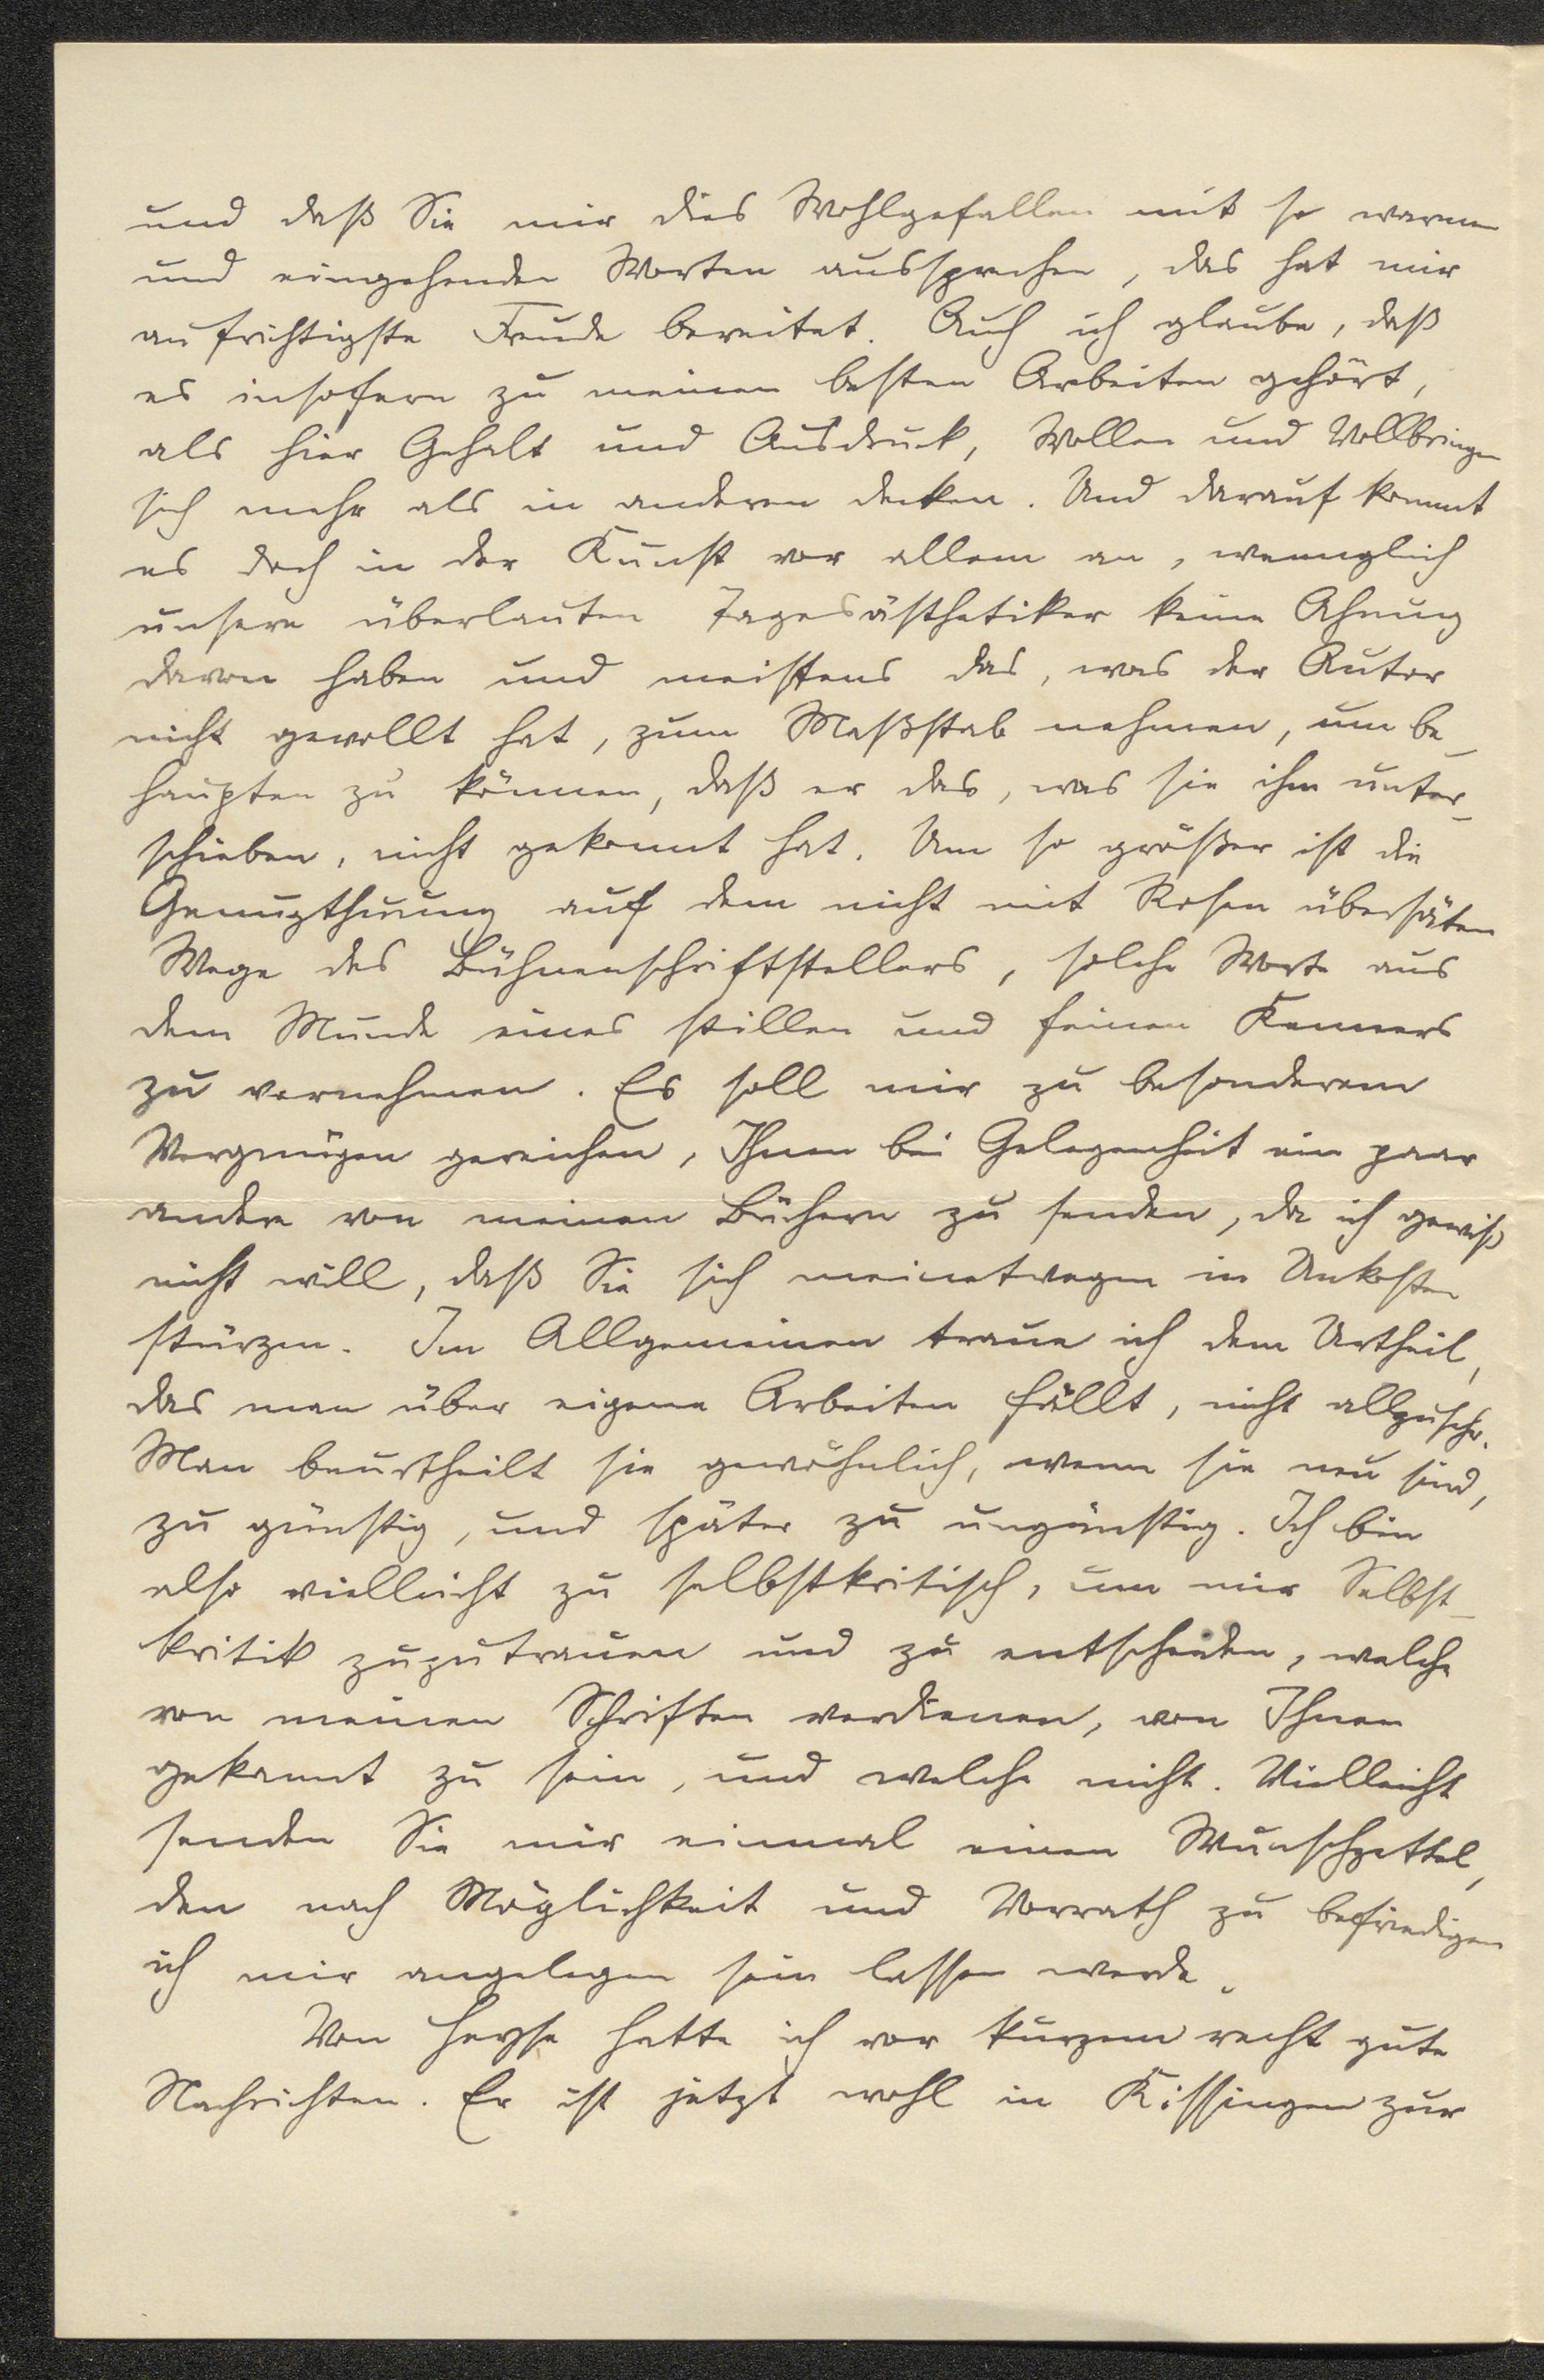 und daß Sie mir dies Wohlgefallen mit so warmen
und eingehenden Worten aussprechen, das hat mir
aufrichtigste Freude bereitet. Auch ich glaube, daß
es insofern zu meinen besten Arbeiten gehört,
als hier Gehalt und Ausdruck, Wollen und Vollbringen
sich mehr als in anderen decken. Und darauf kommt
es doch in der Kunst vor allem an, wenngleich
unsere überlauten Tagesästhetiker keine Ahnung
davon haben und meistens das, was der Autor
nicht gewollt hat, zum Maßstab nehmen, um be-
haupten zu können, daß er das, was sie ihm unter-
schieben, nicht gekonnt hat. Um so größer ist die
Genugthuung auf dem nicht mit Rosen übersäten
Wege des Bühnenschriftstellers, solche Worte aus
dem Munde eines stillen und feinen Kenners
zu vernehmen. Es soll mir zu besonderem
Vergnügen gereichen, Ihnen bei Gelegenheit ein paar
andere von meinen Büchern zu senden, da ich gewiß
nicht will, daß Sie sich meinetwegen in Unkosten
stürzen. Im Allgemeinen traue ich dem Urtheil,
das man über eigene Arbeiten fällt, nicht allzusehr.
Man beurtheilt sie gewöhnlich, wenn sie neu sind,
zu günstig, und später zu ungünstig. Ich bin
also vielleicht zu selbstkritisch, um mir Selbst-
kritik zuzutrauen und zu entscheiden, welche
von meinen Schriften verdienen, von Ihnen
gekannt zu sein, und welche nicht. Vielleicht
senden Sie mir einmal einen Wunschzettel,
den nach Möglichkeit und Vorrath zu befriedigen
ich mir angelegen sein lassen werde.
Von Heyse hatte ich vor kurzem recht gute
Nachrichten. Er ist jetzt wohl in Kissingen zur